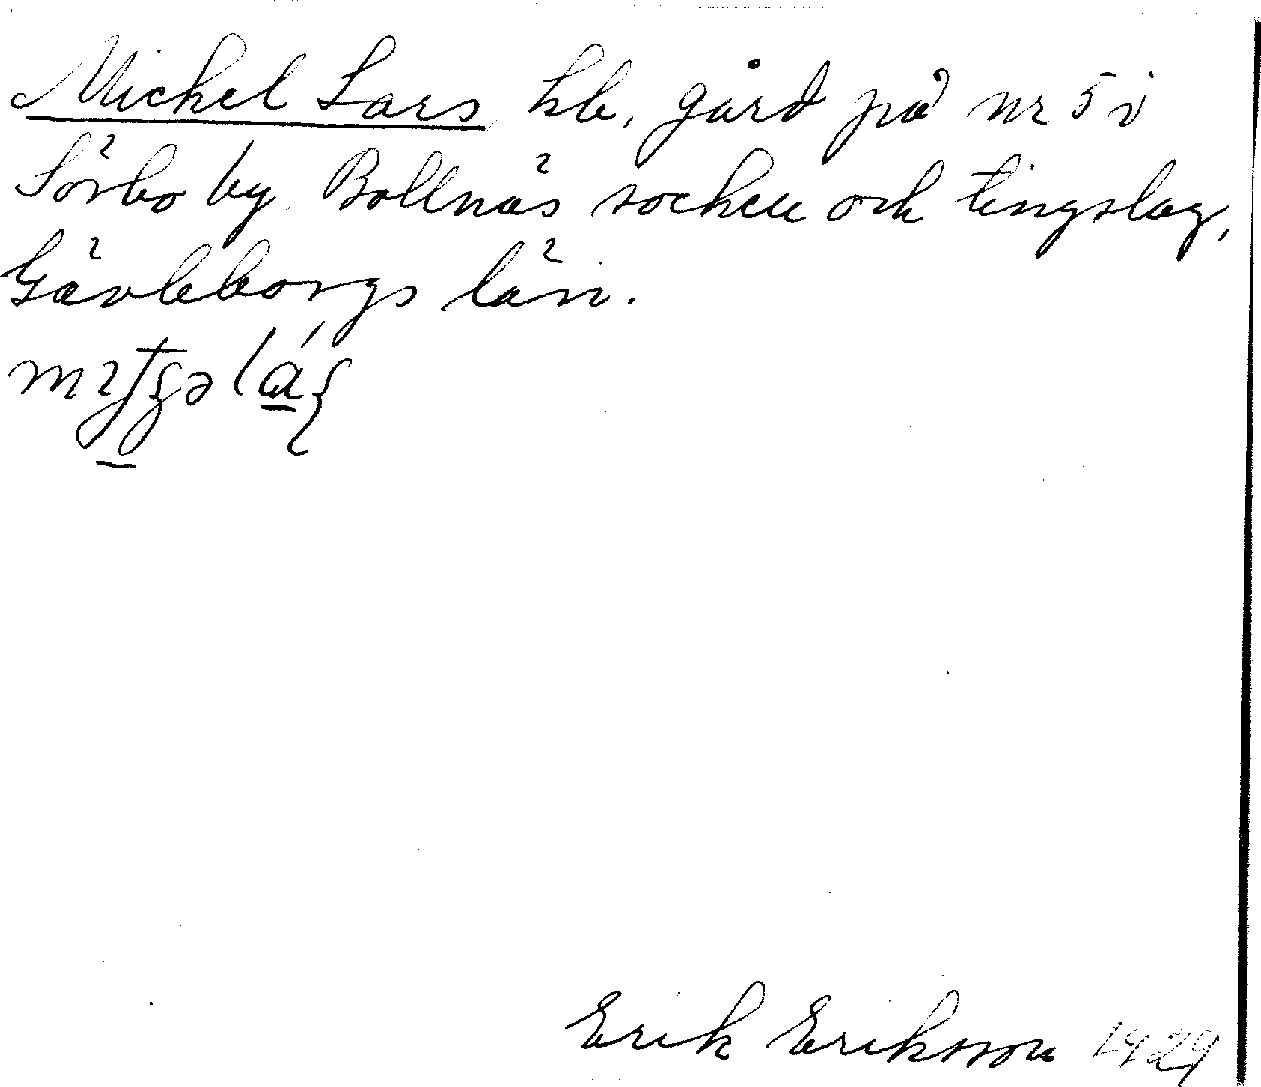 Michel Lars hb, gård på nr 5 i
Sörbo by Bollnäs socken och tingslag,
Gävleborgs län.
Erik Eriksson 1929